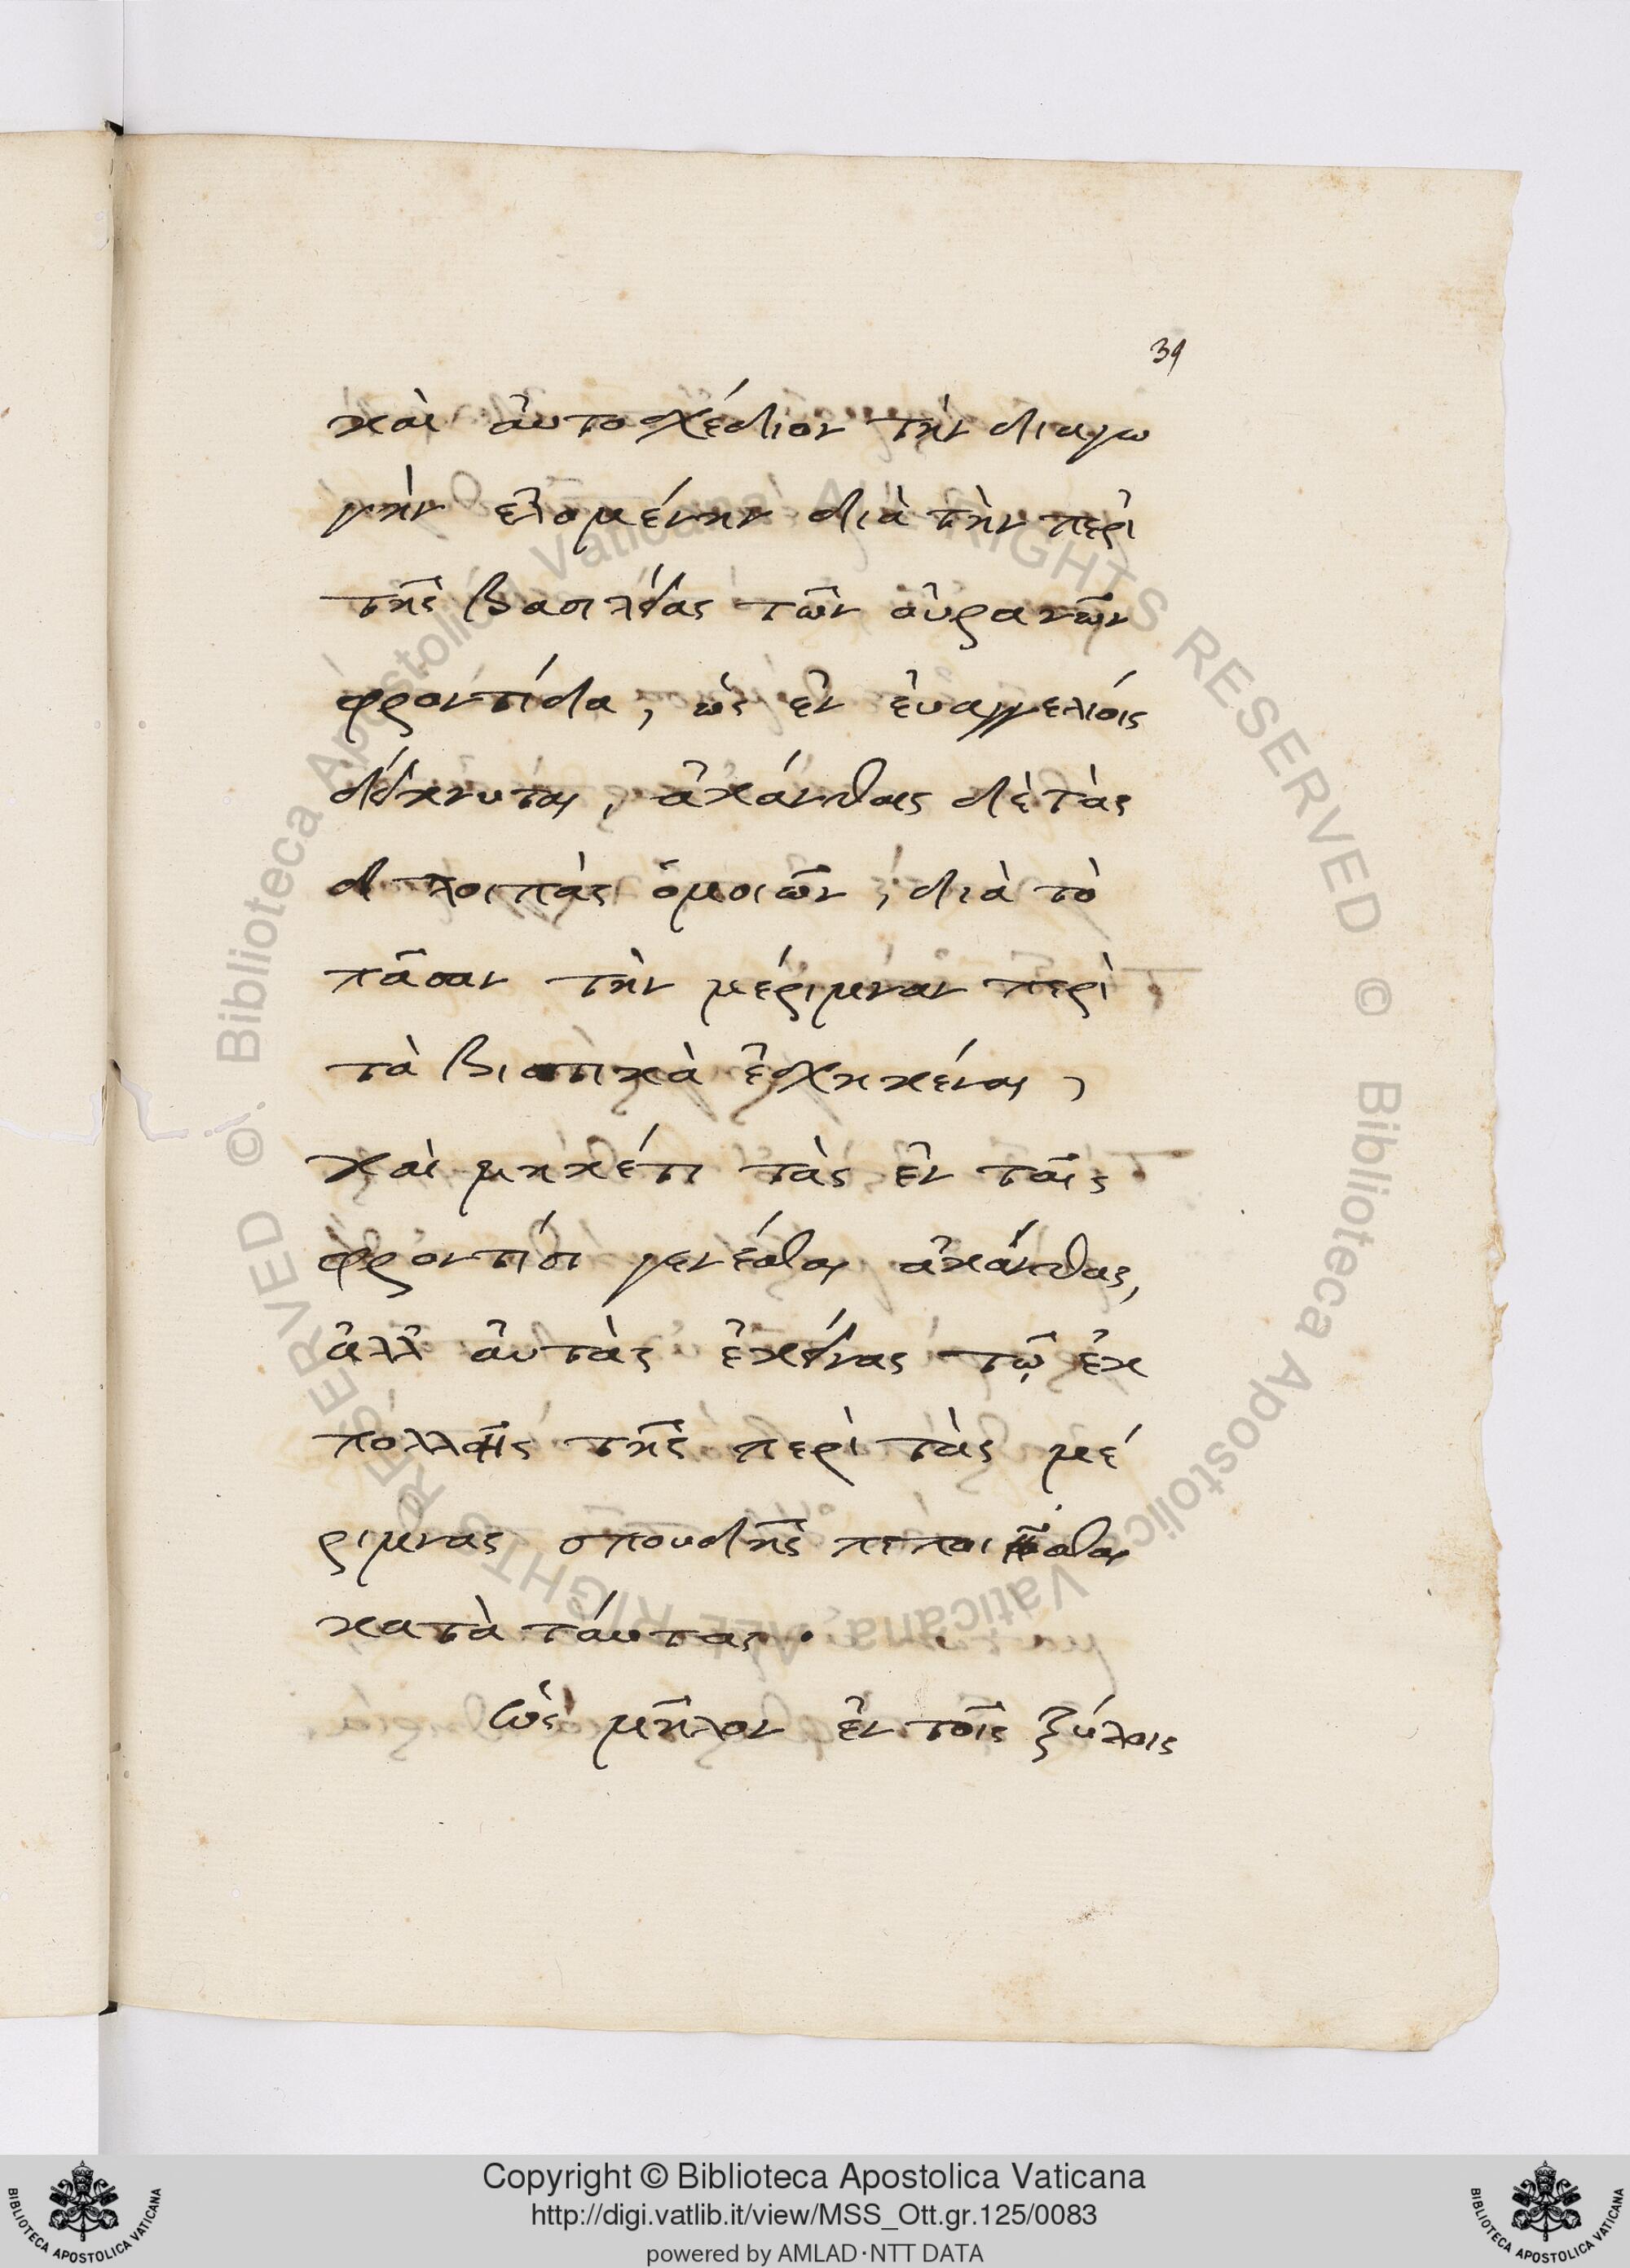 39
καὶ ἀυτοσχέδιον τὴν διαγω
γὴν ἑλομένην διὰ τὴν περὶ
τῆς βασιλείας τῶν οὐρανῶν
φροντίδα, ὡς ἐν ἐυαγγελίοις
δείκνυται, ἀκάνθας δὲ τὰς
λοιπὰς ὁμοιῶν, διὰ τὸ
πᾶσαν τὴν μέριμναν περὶ
τὰ βιοτικὰ ἐσχηκέναι,
καὶ μηκέτι τὰς ἐν ταῖς
φροντίσι γενέσθαι ἀκάνθας,
ἀλλ' ἀυτὰς ἐκείνας τῷ ἐκ
πολλῆς τῆς περὶ τὰς μέ
ριμνας σπουδῆς
κατὰ τάυτας.
Ὡς μῆλον ἐν τοῖς ξύλοις
© Biblioteca Apostolica Vaticana ALL RIGHTS RESERVED © Biblioteca Apostolica Vaticana ALL RIGHTS RESERVED
Copyright © Biblioteca Apostolica Vaticana
http://digi.vatlib.it/view/MSS_Ott.gr.125/0083
powered by AMLAD·NTT DATA
BIBLIOTECA APOSTOLICA VATICANA
BIBLIOTECA APOSTOLICA VATICANA